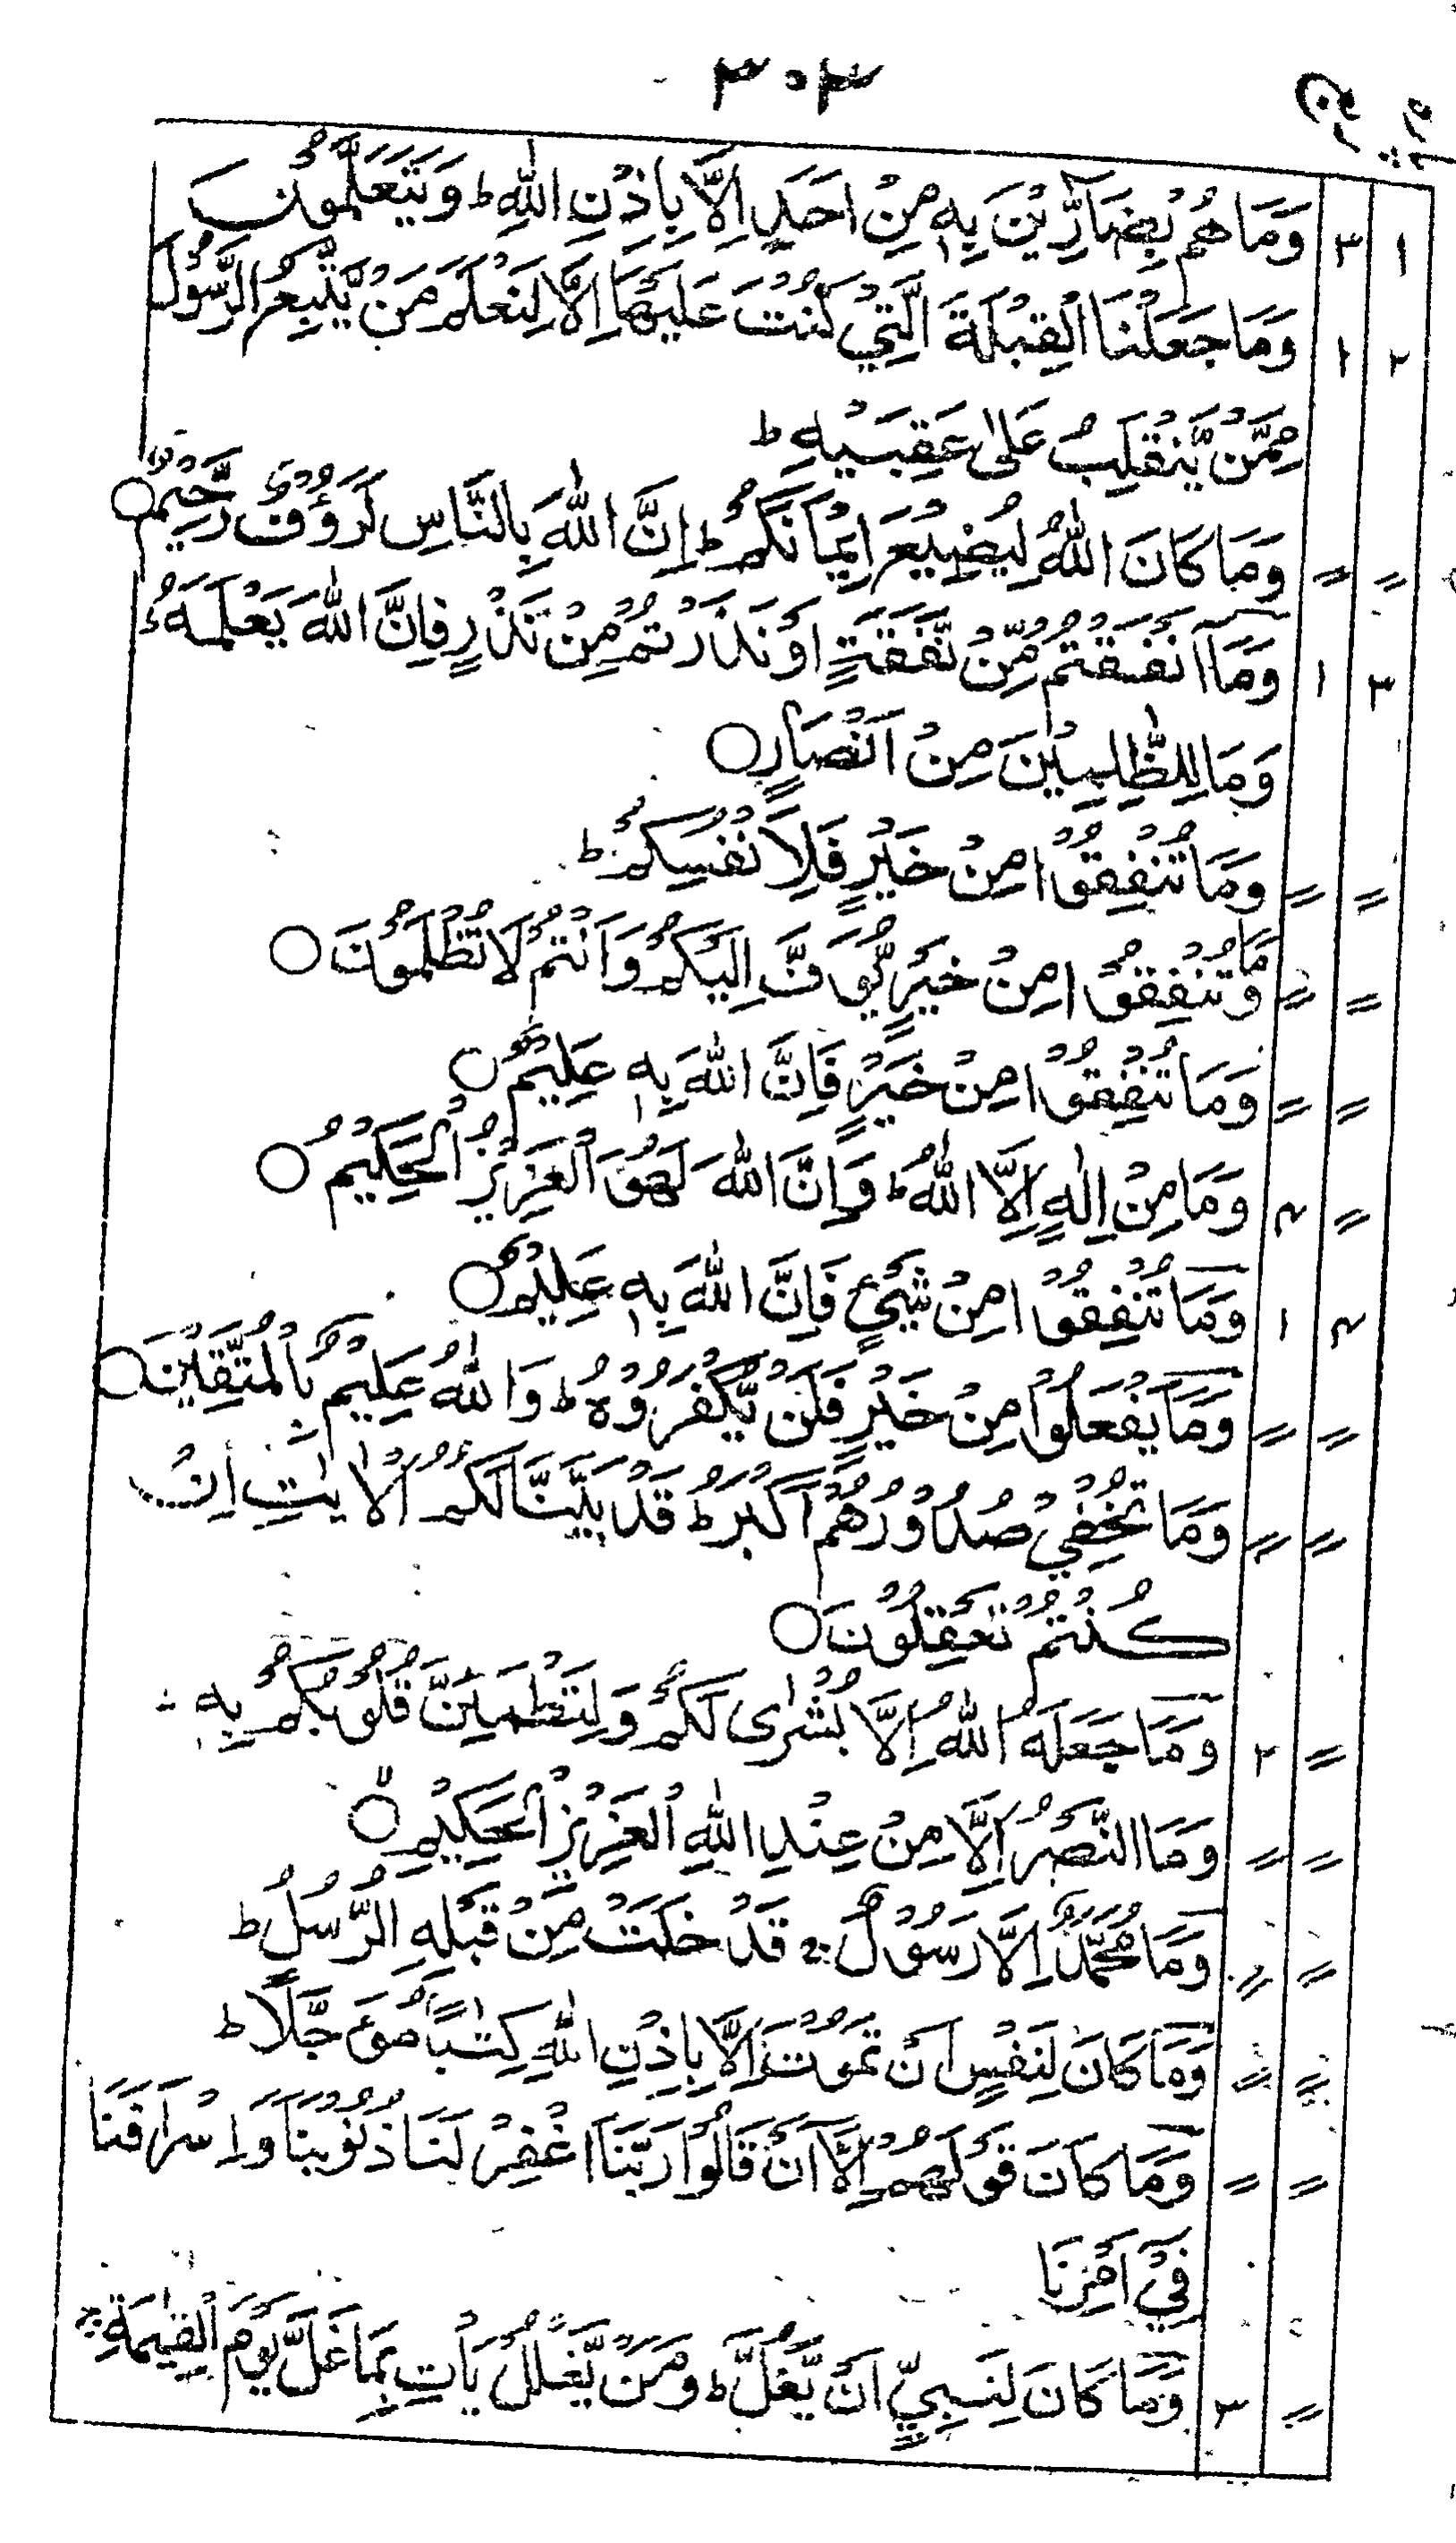 ۳۰۳
پارہ ربع
۱ ۳ وَمَا هُمْ بِضَآرِّيْنَ بِهٖ مِنْ اَحَدٍ اِلَّا بِاِذْنِ اللّٰهِ ط وَيَتَعَلَّمُوْنَ
۲ ۱ وَمَا جَعَلْنَا الْقِبْلَةَ الَّتِيْ كُنْتَ عَلَيْهَآ اِلَّا لِنَعْلَمَ مَنْ يَّتَّبِعُ الرَّسُوْلَ
مِمَّنْ يَّنْقَلِبُ عَلٰى عَقِبَيْهِ ط
= = وَمَا كَانَ اللّٰهُ لِيُضِيْعَ اِيْمَانَكُمْ ط اِنَّ اللّٰهَ بِالنَّاسِ لَرَءُوْفٌ رَّحِيْمٌ ○
۳ ۱ وَمَآ اَنْفَقْتُمْ مِّنْ نَّفَقَةٍ اَوْ نَذَرْتُمْ مِّنْ نَّذْرٍ فَاِنَّ اللّٰهَ يَعْلَمُهٗ
وَمَا لِلظّٰلِمِيْنَ مِنْ اَنْصَارٍ ○
= = وَمَا تُنْفِقُوْا مِنْ خَيْرٍ فَلِاَنْفُسِكُمْ ط
= = وَمَا تُنْفِقُوْا مِنْ خَيْرٍ يُّوَفَّ اِلَيْكُمْ وَاَنْتُمْ لَا تُظْلَمُوْنَ ○
= = وَمَا تُنْفِقُوْا مِنْ خَيْرٍ فَاِنَّ اللّٰهَ بِهٖ عَلِيْمٌ ○
= ۴ وَمَا مِنْ اِلٰهٍ اِلَّا اللّٰهُ ط وَاِنَّ اللّٰهَ لَهُوَ الْعَزِيْزُ الْحَكِيْمُ ○
۴ ۱ وَمَا تُنْفِقُوْا مِنْ شَيْءٍ فَاِنَّ اللّٰهَ بِهٖ عَلِيْمٌ ○
= = وَمَا يَفْعَلُوْا مِنْ خَيْرٍ فَلَنْ يُّكْفَرُوْهُ ط وَاللّٰهُ عَلِيْمٌۢ بِالْمُتَّقِيْنَ ○
= = وَمَا تُخْفِيْ صُدُوْرُهُمْ اَكْبَرُ ط قَدْ بَيَّنَّا لَكُمُ الْاٰيٰتِ اِنْ
كُنْتُمْ تَعْقِلُوْنَ ○
= ۲ وَمَا جَعَلَهُ اللّٰهُ اِلَّا بُشْرٰى لَكُمْ وَلِتَطْمَئِنَّ قُلُوْبُكُمْ بِهٖ
= = وَمَا النَّصْرُ اِلَّا مِنْ عِنْدِ اللّٰهِ الْعَزِيْزِ الْحَكِيْمِ ○ لا
= = وَمَا مُحَمَّدٌ اِلَّا رَسُوْلٌ ج قَدْ خَلَتْ مِنْ قَبْلِهِ الرُّسُلُ ط
= = وَمَا كَانَ لِنَفْسٍ اَنْ تَمُوْتَ اِلَّا بِاِذْنِ اللّٰهِ كِتٰبًا مُّؤَجَّلًا ط
= = وَمَا كَانَ قَوْلَهُمْ اِلَّآ اَنْ قَالُوْا رَبَّنَا اغْفِرْ لَنَا ذُنُوْبَنَا وَاِسْرَافَنَا
فِيْٓ اَمْرِنَا
= ۳ وَمَا كَانَ لِنَبِيٍّ اَنْ يَّغُلَّ ط وَمَنْ يَّغْلُلْ يَاْتِ بِمَا غَلَّ يَوْمَ الْقِيٰمَةِ ج